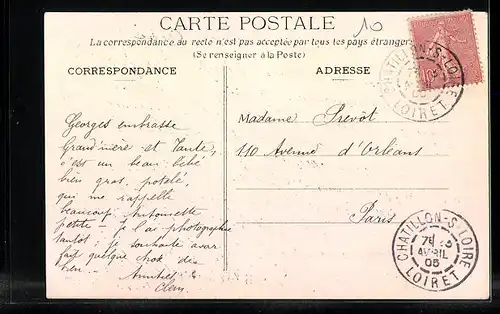 CARTE POSTALE
10
La correspondance au recto n'est pas acceptée par tous les pays étrangers
(Se renseigner à la Poste)
CORRESPONDANCE
ADRESSE
Georges embrasse
Grand'mère et Tante,
c'est un beau bébé
bien gras, potelé,
qui me rappelle
beaucoup Antoinette
petite - je l'ai photographié
tantôt, je souhaite avoir
fait quelque chose de
bien -
Amitiés
Clem.
Madame Prévot
110 Avenue d'Orléans
Paris
CHATILLON-S-LOIRE
LOIRET
CHATILLON-S-LOIRE
AVRIL
05
LOIRET